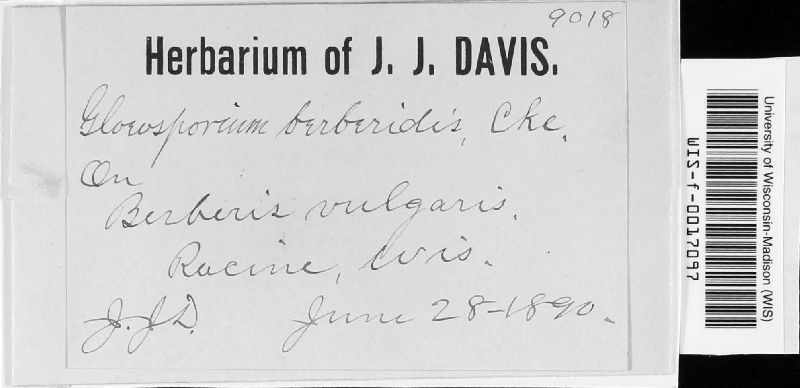 9018
Herbarium of J. J. DAVIS.
Gloeosporium berberidis, Cke.
On
Berberis vulgaris.
Racine, Wis.
J.J.D. June 28-1890.
University of Wisconsin-Madison (WIS)
WIS-f-0017097